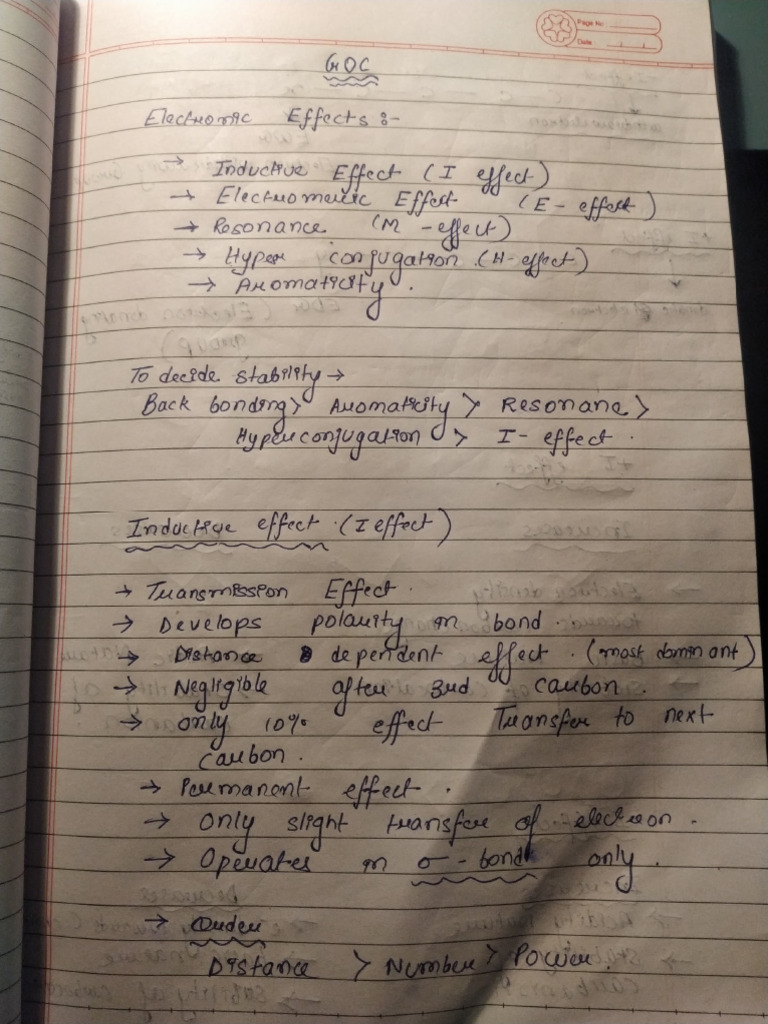 Page No.
Date
GOC
Electronic Effects :-
→ Inductive Effect (I effect)
→ Electromeric Effect (E - effect)
→ Resonance (M - effect)
→ Hyper conjugation (H-effect)
→ Aromaticity.
To decide stability →
Back bonding > Aromaticity > Resonane >
Hyperconjugation > I - effect.
Inductive effect (I effect)
→ Transmission Effect.
→ Develops polarity in bond.
→ Distance dependent effect. (most dominant)
→ Negligible after 3rd carbon.
→ Only 10% effect Transfer to next
carbon.
→ Permanent effect.
→ Only slight transfer of electron.
→ Operates in σ - bond only.
→ Order
Distance > Number > Power.